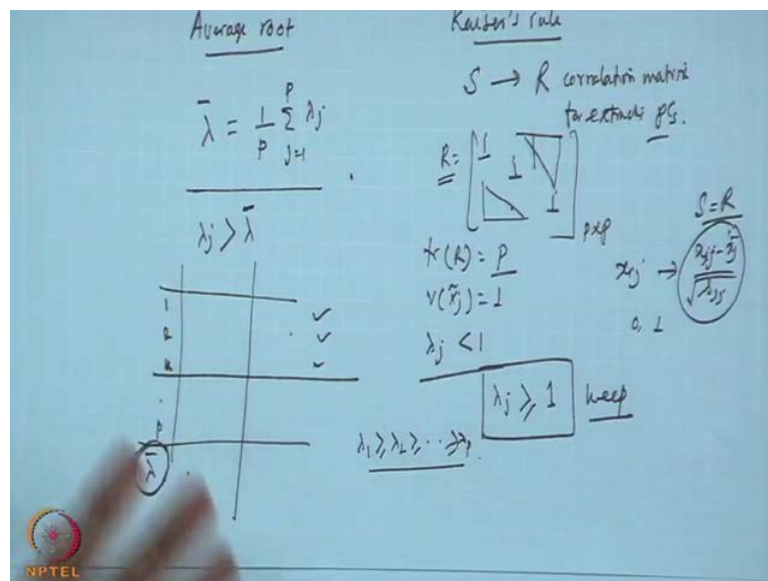 Average root
λ̄ = 1/p Σ_{j=1}^{p} λj
λj > λ̄
1 ✓
2 ✓
k ✓
.
p
λ̄
Kaiser's rule
S → R correlation matrix
for extracting PCs.
R = [1 1 1] p×p
tr(R) = p
v(x̃j) = 1
λj < 1
λj ≥ 1 keep
λ1 ≥ λ2 ≥ ... ≥ λp.
S = R
xij → (xij - x̄j)/√sjj
0, 1
NPTEL